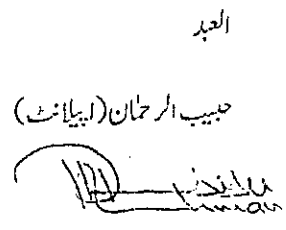 العبد
حبیب الرحمان (اپیلانٹ)